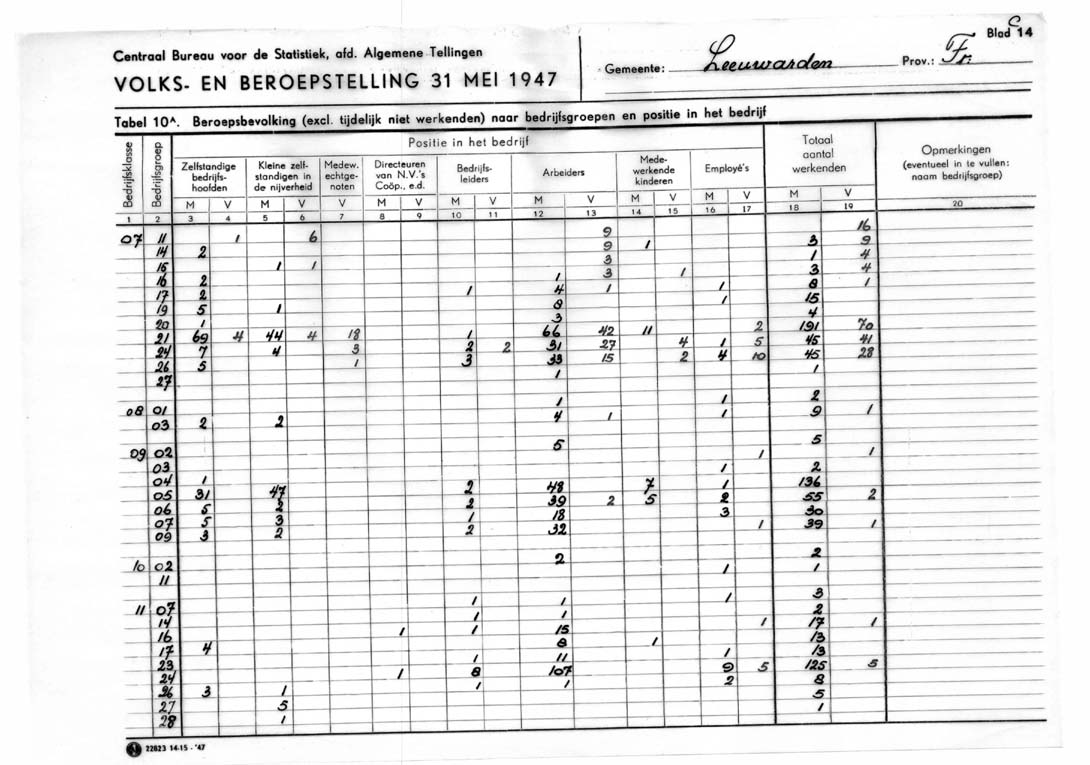 Blad C 14
Centraal Bureau voor de Statistiek, afd. Algemene Tellingen
VOLKS- EN BEROEPSTELLING 31 MEI 1947
Gemeente: Leeuwarden Prov.: Fr.
Tabel 10A. Beroepsbevolking (excl. tijdelijk niet werkenden) naar bedrijfsgroepen en positie in het bedrijf
Bedrijfsklasse Bedrijfsgroep Positie in het bedrijf Totaal aantal werkenden Opmerkingen (eventueel in te vullen: naam bedrijfsgroep)
Zelfstandige bedrijfshoofden Kleine zelfstandigen in de nijverheid Medew. echtgenoten Directeuren van N.V.'s Coöp., e.d. Bedrijfsleiders Arbeiders Medewerkende kinderen Employé's
M V M V V M V M V M V M V M V M V
1 2 3 4 5 6 7 8 9 10 11 12 13 14 15 16 17 18 19 20
07 11 1 6 9 16
14 2 9 1 3 9
15 1 1 3 1 4
16 2 1 3 1 3 4
17 2 1 4 1 1 8 1
19 5 1 8 1 15
20 1 3 4
21 69 4 44 4 18 1 66 42 11 2 191 70
24 7 4 3 2 2 31 27 4 1 5 45 41
26 5 1 3 33 15 2 4 10 45 28
27 1 1
08 01 1 1 2
03 2 2 4 1 1 9 1
09 02 5 5
03 1 1
04 1 1 2
05 31 47 2 48 7 1 136
06 5 2 2 39 2 5 2 55 2
07 5 3 1 18 3 30
09 3 2 2 32 1 39 1
10 02 2 2
11 1 1
11 07 1 1 1 3
14 1 1 2
16 1 1 15 1 17 1
17 4 8 1 13
23 1 11 1 13
24 1 8 107 9 5 125 5
26 3 1 1 1 2 8
27 5 5
28 1 1
22823 14-15 - '47